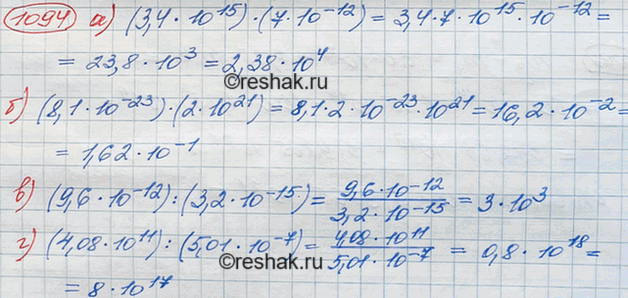 1094 а) (3,4·10¹⁵)·(7·10⁻¹²) = 3,4·7·10¹⁵·10⁻¹² =
= 23,8·10³ = 2,38·10⁴
б) (8,1·10⁻²³)·(2·10²¹) = 8,1·2·10⁻²³·10²¹ = 16,2·10⁻² =
= 1,62·10⁻¹
в) (9,6·10⁻¹²):(3,2·10⁻¹⁵) = 9,6·10⁻¹² / 3,2·10⁻¹⁵ = 3·10³
г) (4,08·10¹¹):(5,01·10⁻⁷) = 4,08·10¹¹ / 5,01·10⁻⁷ = 0,8·10¹⁸ =
= 8·10¹⁷
©reshak.ru
©reshak.ru